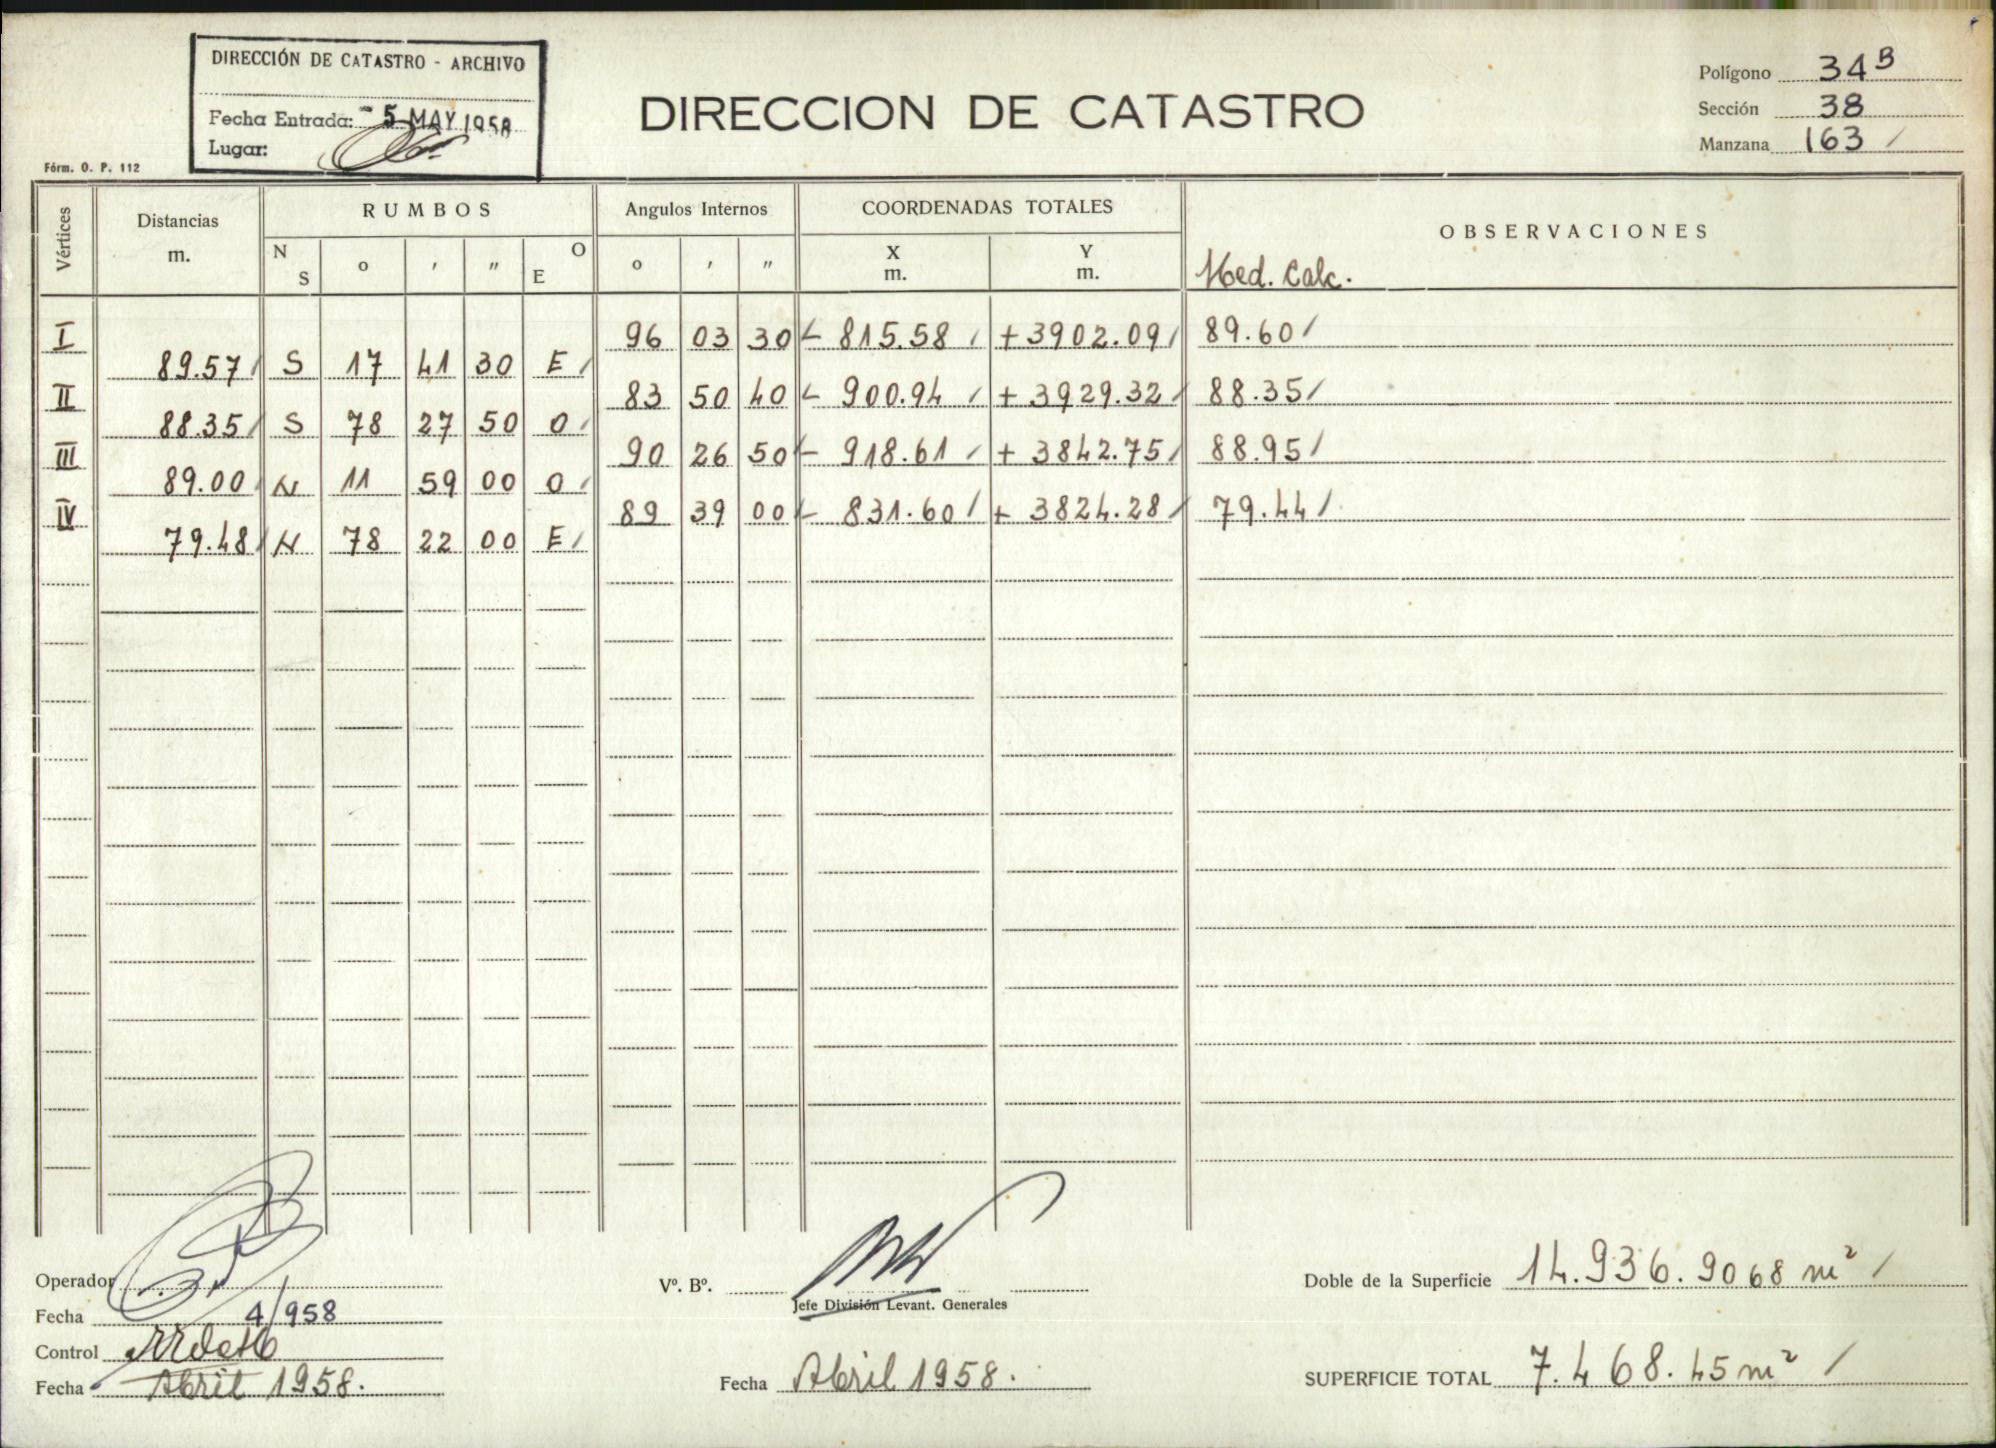 DIRECCIÓN DE CATASTRO - ARCHIVO
Fecha Entrada: - 5 MAY 1958
Lugar:
Fórm. O. P. 112
DIRECCION DE CATASTRO
Polígono 34 B
Sección 38
Manzana 163 /
Vértices Distancias m. RUMBOS N S o ' " E O Angulos Internos o ' " COORDENADAS TOTALES X m. Y m. OBSERVACIONES
Med. Calc.
I 96 03 30 - 815.58 / + 3902.09 / 89.60 /
89.57 / S 17 41 30 E /
II 83 50 40 - 900.94 / + 3929.32 / 88.35 /
88.35 / S 78 27 50 O /
III 90 26 50 - 918.61 / + 3842.75 / 88.95 /
89.00 / N 11 59 00 O /
IV 89 39 00 - 831.60 / + 3824.28 / 79.44 /
79.48 / N 78 22 00 E /
Operador
Fecha 4/958
Control
Fecha Abril 1958.
Vº. Bº.
Jefe División Levant. Generales
Fecha Abril 1958.
Doble de la Superficie 14.936.9068 m² /
SUPERFICIE TOTAL 7.468.45 m² /